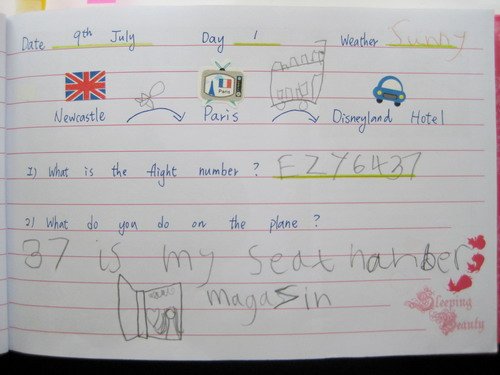 Date 9th July Day 1 Weather Sunny
Paris
Newcastle Paris Disneyland Hotel
1) What is the flight number ? EZY6437
2) What do you do on the plane ?
37 is my seat nanber
magasin
Sleeping
Beauty